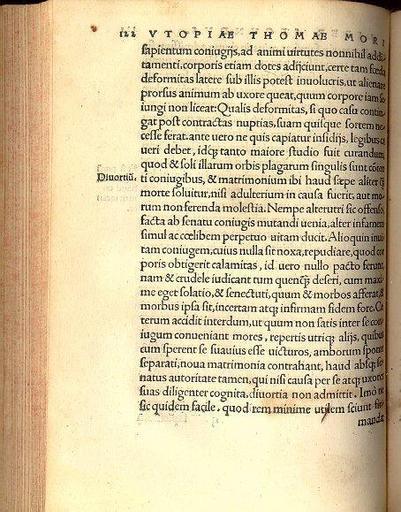 122 VTOPIAE THOMAE MORI
sapientum coniugijs, ad animi uirtutes nonnihil addi
tamenti, corporis etiam dotes adijciunt, certe tam fœda
deformitas latere sub illis potest inuolucris, ut alienare
prorsus animum ab uxore queat, quum corpore iam se
iungi non liceat. Qualis deformitas, si quo casu contin
gat post contractas nuptias, suam quisque sortem ne
cesse ferat. ante uero ne quis capiatur insidijs, legibus ca
ueri debet, idq; tanto maiore studio fuit curandum,
quod & soli illarum orbis plagarum singulis sunt conten
Diuortiū.
ti coniugibus, & matrimonium ibi haud sæpe aliter q̃
morte soluitur, nisi adulterium in causa fuerit, aut mo
rum non ferenda molestia. Nempe alterutri sic offenso,
facta ab senatu coniugis mutandi uenia, alter infamem
simul ac cœlibem perpetuo uitam ducit. Alioquin inui
tam coniugem, cuius nulla sit noxa, repudiare, quod cor
poris obtigerit calamitas, id uero nullo pacto ferunt,
nam & crudele iudicant tum quenq̃ deseri, cum maxi
me eget solatio, & senectuti, quum & morbos afferat, &
morbus ipsa sit, incertam atq; infirmam fidem fore. Cæ
terum accidit interdum, ut quum non satis inter se con
iugum conueniant mores, repertis utriq; alijs, quibus
cum sperent se suauius esse uicturos, amborum sponte
separati, noua matrimonia contrahant, haud absq; se
natus autoritate tamen, qui nisi causa per se atq; uxores
suas diligenter cognita, diuortia non admittit. Imo ne
sic quidem facile, quod rem minime utilem sciunt fir
mandæ